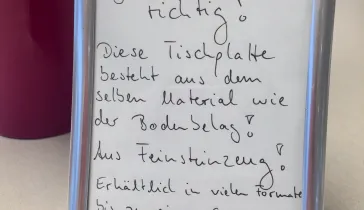 richtig!
Diese Tischplatte
besteht aus dem
selben Material wie
der Bodenbelag!
Aus Feinsteinzeug!
Erhältlich in vielen Formate